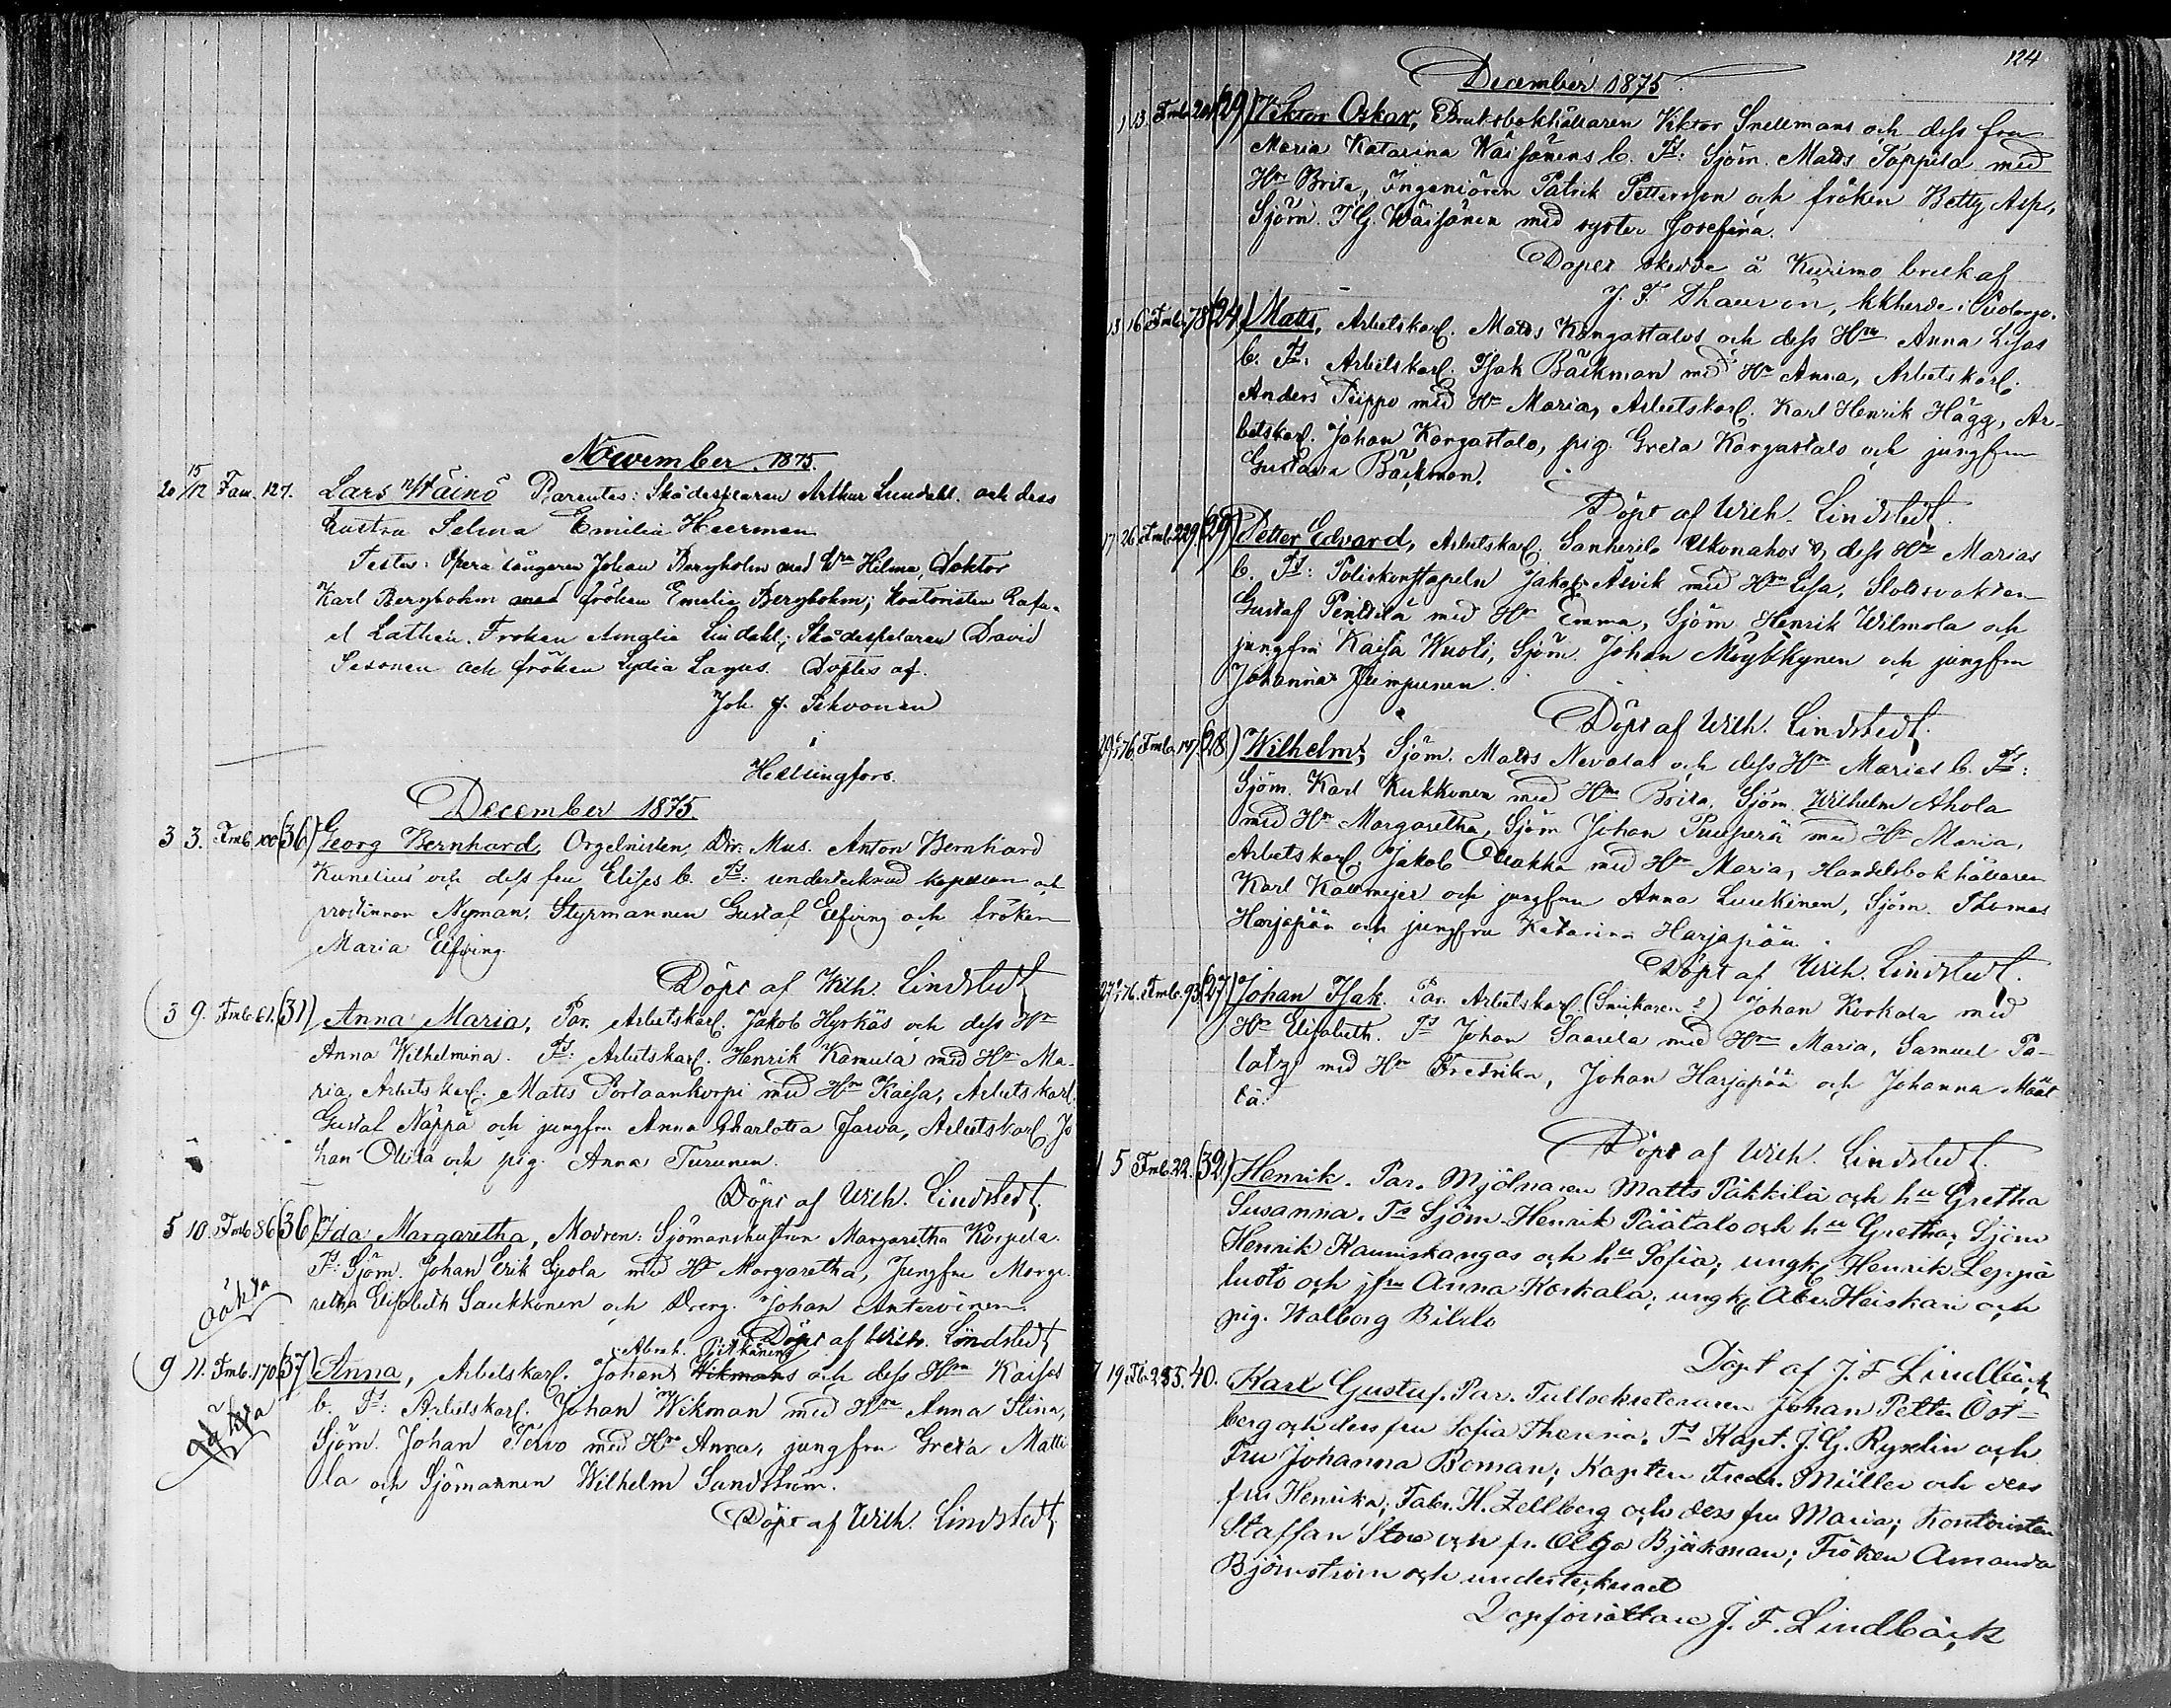 November 1875.
20 15/12 Fam. 127. Lars Wäinö Parentes: Skådespelaren Arthur Lundahl. och dess
hustru Selma Emilia Heerman
Testes: Opera sångaren Johan Bergholm med Hrn Hilma, Doktor
Karl Bergbohm med fröken Emelie Bergbohm; Kontoristen Rafa-
el Lathén. Froken Amalia Lindahl; Skådespelaren David
Sexonen och fröken Lydia Lagus. Döptes af.
Joh. g. Schvonen
i
Helsingfors.
December 1875.
3 3. Fmb. 100 (36) Georg Bernhard, Orgelnisten, Dir. Mus. Anton Bernhard
Kunelius och dess fru Elises b. Ts: undertecknad kapellan och
prostinnan Nyman, Styrmannen Gustaf Elfving och fröken
Maria Elfving.
Döpt af Wilh. Lindstedt
3 9. Fmb. 61. (31) Anna Maria, Par. Arbetskarl. Jakob Hyrkäs och dess Hru
Anna Wilhelmina. Ts: Arbetskarl. Henrik Kamula med Hru Ma-
ria, Arbetskarl. Matts Portaankorpi med Hru Kaisa, Arbetskarl.
Gustaf Näppä och jungfru Anna Charlotta Jarva, Arbetskarl Jo
han Ollila och pig. Anna Turunen.
Döpt af Wilh. Lindstedt.
5 10. Fmb 86 (36) Ida Margaretha, Modren: Sjömanshustrun Margaretha Korpela.
Ts: Sjöm. Johan Erik Ojeola med Hr Margaretha, Jungfru Marga
retha Elisabeth Saukkonen och Dreng. Johan Antervinen.
oäkta
Döpt af Wilh. Lindstedt
Abrah. Pitkänens
9 11. Fmb. 170 (37) Anna, Arbetskarl. Johans Wikmans och dess Hru Kaisas
b. Ts: Arbetskarl. Johan Wikman med Hru Anna Stina,
oäkta
Sjöm. Johan Tervo med Hr Anna, jungfru Greta Matti
la och Sjömannen Wilhelm Sandström.
Döpt af Wilh. Lindstedt
124
December 1875
1 13. Fmb. 201 (29) Viktor Oskar, Bruksbokhållaren Viktor Snellmans och dess fru
Maria Katarina Wäisänens b. Ts: Sjöm. Matts Toppila med
Hru Brita, Ingeniören Patrik Pettersson och fröken Betty Asp,
Sjörn. T G. Wäisänen med syster Josefina.
Dopet skedde å Kurimo bruk af
J. F. Thauvon, kkherde i Pudasja.
13 16 Fmb. 78 (24) Matts, Arbetskarl. Matts Kangastalos och dess Hru Anna Lisas
b. Ts: Arbetskarl. Isak Bäckman med Hr Anna, Arbetskarl.
Anders Piippo med Hr Maria, Arbetskarl. Karl Henrik Hägg, Ar-
betskarl. Johan Kangastalo, pig. Greta Kangastalo och jungfru
Gustava Bäckman.
Döpt af Wilh. Lindstedt.
17 26 Fmb. 229 (29) Petter Edvard, Arbetskarl. Sanherib Ukonahos & dess Hr Marias
b. Ts: Poliskonstapeln Jakob Asvik med Hru Lisa, Slottsvakten
Gustaf Penttilä med Hr Emma, Sjöm. Henrik Wilmola och
jungfru Kaisa Wuoti, Sjöm. Johan Möykkynen och jungfru
Johanna Jumpunen.
Döpt af Wilh. Lindstedt.
29 76 Fmb. 147. (28) Wilhelm, Sjöm. Matts Nevalas och dess Hru Marias b. Ts:
Sjöm. Karl Kukkonen med Hru Brita, Sjöm. Wilhelm Ahola
med Hr Margaretha, Sjöm Johan Puuperä med Hr Maria,
Arbetskarl. Jakob Ollakka med Hr Maria, Handelsbokhållaren
Karl Kallmejer och jungfru Anna Luukinen, Sjöm. Thomas
Harjapää och jungfru Katarina Harjapää.
Döpt af Wilh. Lindstedt.
27 76. Fmb. 93. (27) Johan Isak. Par. Arbetskarl. (Snickaren?) Johan Korkala med
Hr Elisabeth. Ts Johan Saarela med Hru Maria, Samuel Pa-
latz med Hru Fredrika, Johan Harjapää och Johanna Määt
tä.
Döpt af Wilh. Lindstedt.
1 5 Fmb. 22. (32) Henrik. Par. Mjölnaren Matts Päkkilä och hu Gretha
Susanna. Ts Sjöm. Henrik Päätalo och hu Gretha; Sjöm
Henrik Kauniskangas och hu Sofia; ungk. Henrik Leppä
luoto och jfru Anna Korkala; ungk. Abr. Heiskari och
pig. Walborg Bilds
Döpt af J. F Lindbäck
7 19 Fb. 255. 40. Karl Gustaf. Par. Tullsekreteraren Johan Petter Öst-
berg och dess fru Sofia Theresia. Ts Kapt. J. G. Rysslin och
Fru Johanna Boman; Kapten Fredr. Müller och dess
fru Henrika; Fabr. H. Zellberg och dess fru Maria; Kontoristen
Staffan Stow och fr. Olga Bjökman; Fröken Amanda
Björnström och undertecknad
Dopförrättare J. F. Lindbäck